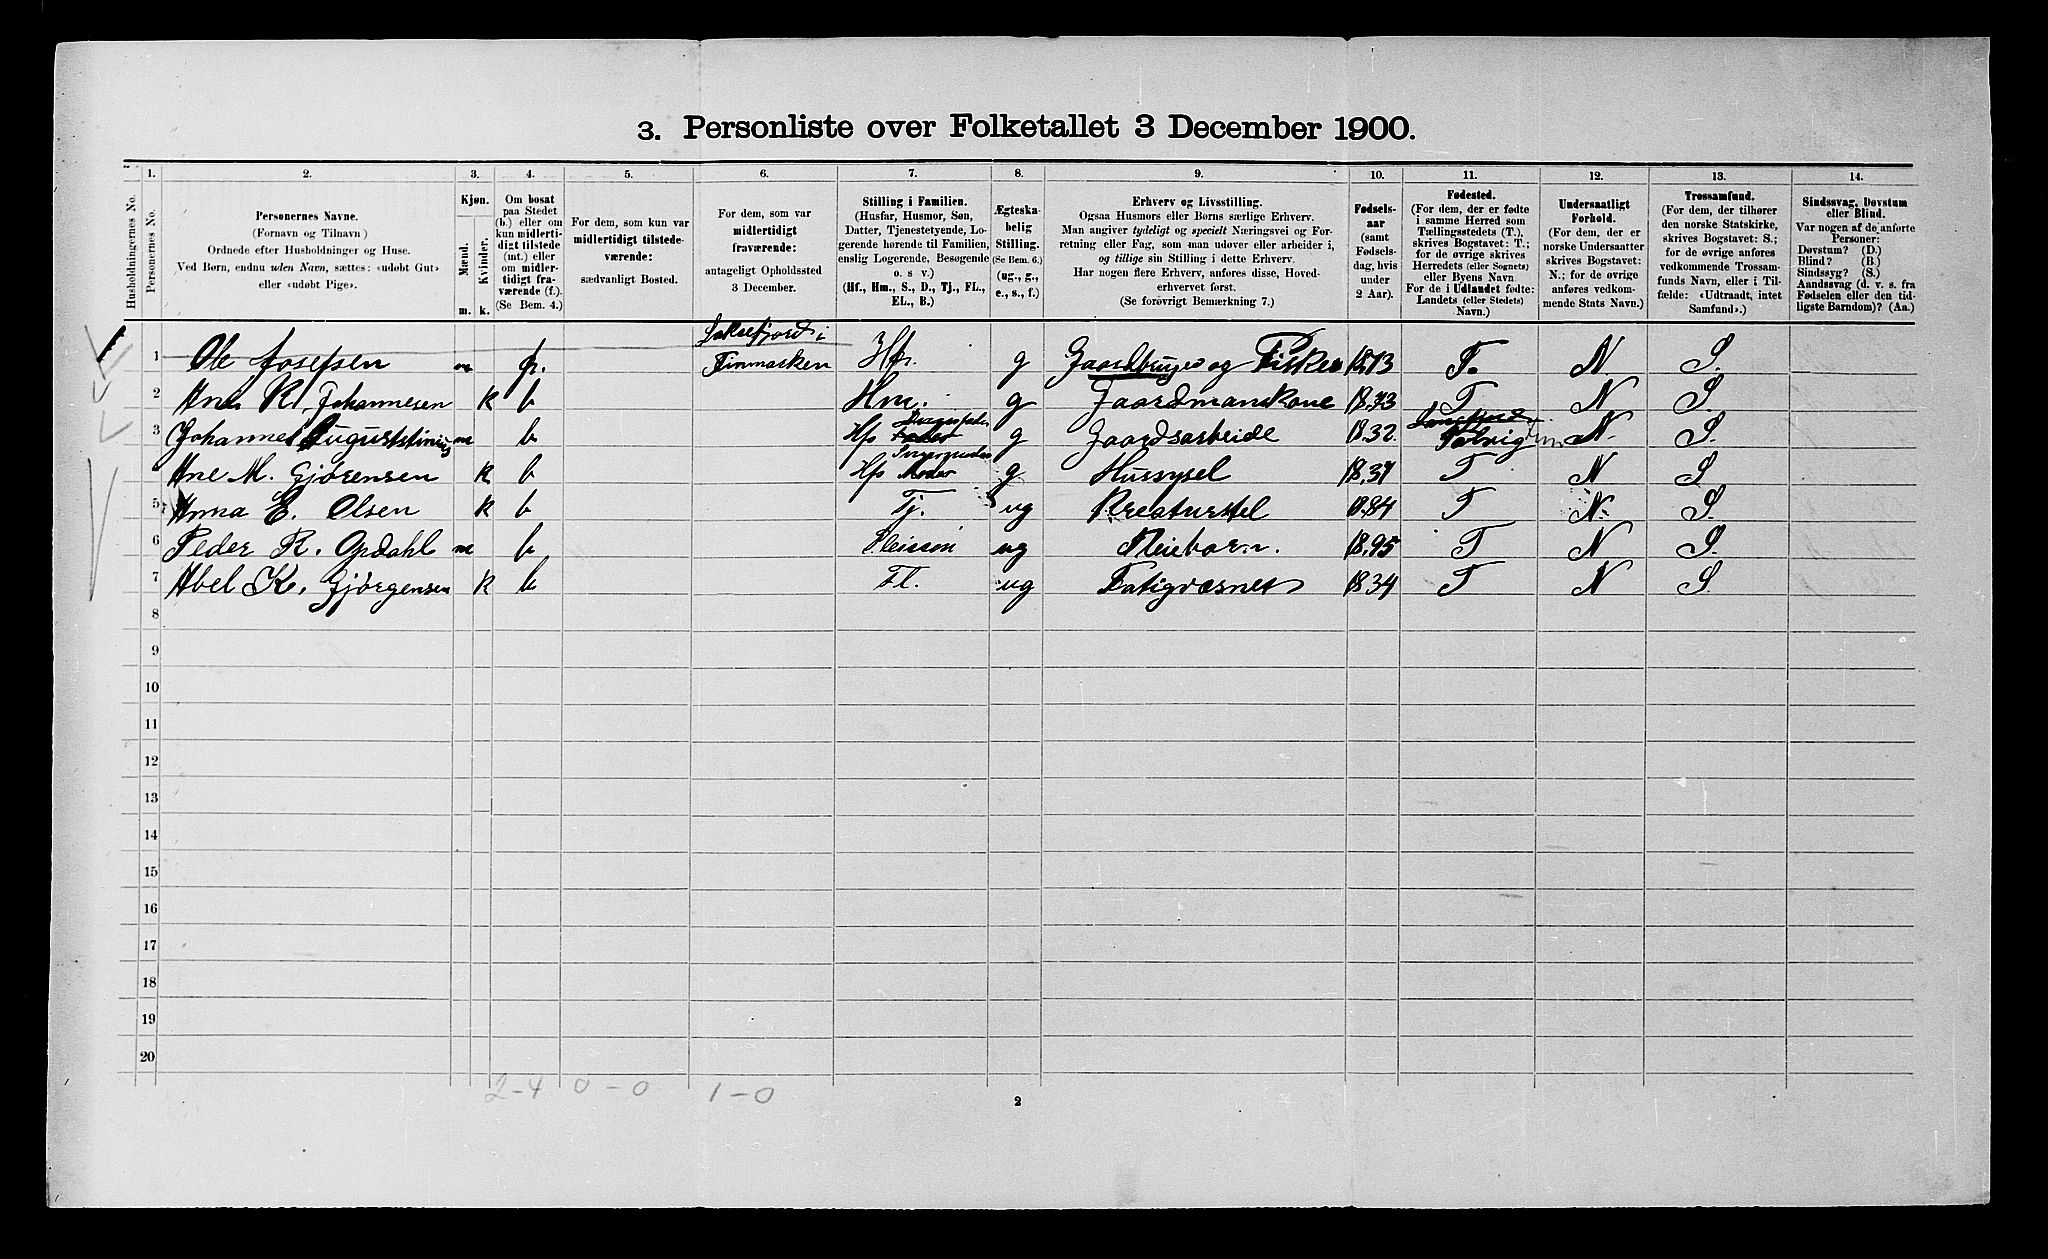 3. Personliste over Folketallet 3 December 1900.
1. 2. 3. 4. 5. 6. 7. 8. 9. 10. 11. 12. 13. 14.
Husholdningernes No.
Personernes No.
Personernes Navne.
(Fornavn og Tilnavn)
Ordnede efter Husholdninger og Huse.
Ved Børn, endnu uden Navn, sættes: «udøbt Gut»
eller «udøbt Pige».
Kjøn.
Mænd.
Kvinder.
m. k.
Om bosat
paa Stedet
(b.) eller om
kun midlerti-
digt tilstede
(mt.) eller
om midler-
tidigt fra-
værende (f.).
(Se Bem. 4.)
For dem, som kun var
midlertidigt tilstede-
værende:
sædvanligt Bosted.
For dem, som var
midlertidigt
fraværende:
antageligt Opholdssted
3 December.
Stilling i Familien.
(Husfar, Husmor, Søn,
Datter, Tjenestetyende, Lo-
gerende hørende til Familien,
enslig Logerende, Besøgende
o. s v.)
(Hf., Hm., S., D., Tj., FL.,
EL., B.)
Ægteska-
belig
Stilling.
(Se Bem. 6.)
(ug., g.,
e., s., f.)
Erhverv og Livsstilling.
Ogsaa Husmors eller Børns særlige Erhverv.
Man angiver tydeligt og specielt Næringsvei og For-
retning eller Fag, som man udøver eller arbeider i,
og tillige sin Stilling i dette Erhverv.
Har nogen flere Erhverv, anføres disse, Hoved-
erhvervet først.
(Se forøvrigt Bemærkning 7.)
Fødsels-
aar
(samt
Fødsels-
dag, hvis
under
2 Aar).
Fødested.
(For dem, der er fødte
i samme Herred som
Tællingsstedets (T.),
skrives Bogstavet: T.;
for de øvrige skrives
Herredets (eller Sognets)
eller Byens Navn
For de i Udlandet fødte:
Landets (eller Stedets)
Navn.)
Undersaatligt
Forhold.
(For dem, der er
norske Undersaatter
skrives Bogstavet:
N.; for de øvrige
anføres vedkom-
mende Stats Navn.)
Trossamfund.
(For dem, der tilhører
den norske Statskirke,
skrives Bogstavet: S.;
for de øvrige anføres
vedkommende Trossam-
funds Navn, eller i Til-
fælde: «Udtraadt, intet
Samfund».)
Sindssvag, Døvstum
eller Blind.
Var nogen af de anførte
Personer:
Døvstum? (D.)
Blind? (B.)
Sindssyg? (S.)
Aandssvag (d. v. s. fra
Fødselen eller den tid-
ligste Barndom)? (Aa.)
1 Ole Josefsen m f. i Finmarken Hf. g Gaardbruger og Fisker 1873 T. N S.
2 Ane R. Johannesen k b Hm. g Gaardmanskone 1873 T N S.
3 Johannes Auguststinius m b Hfs Fader g Gaardsarbeide 1832 N. S.
Ane M. Gjørensen k b Hfs Moder g Hussysel 1837 T N S
5 Anna E. Olsen k b Tj. ug Kreaturstel 1884 T N. S.
6 Peder R. Opdahl m b Pleiesøn ug Pleiebarn. 1895 T N S.
7 Abel K. Gjørgensen k b Fl. ug Fatigvæsnet 1834 T N S.
8
9
10
11
12
13
14
15
16
17
18
19
20
2-4 0-0 1-0
2